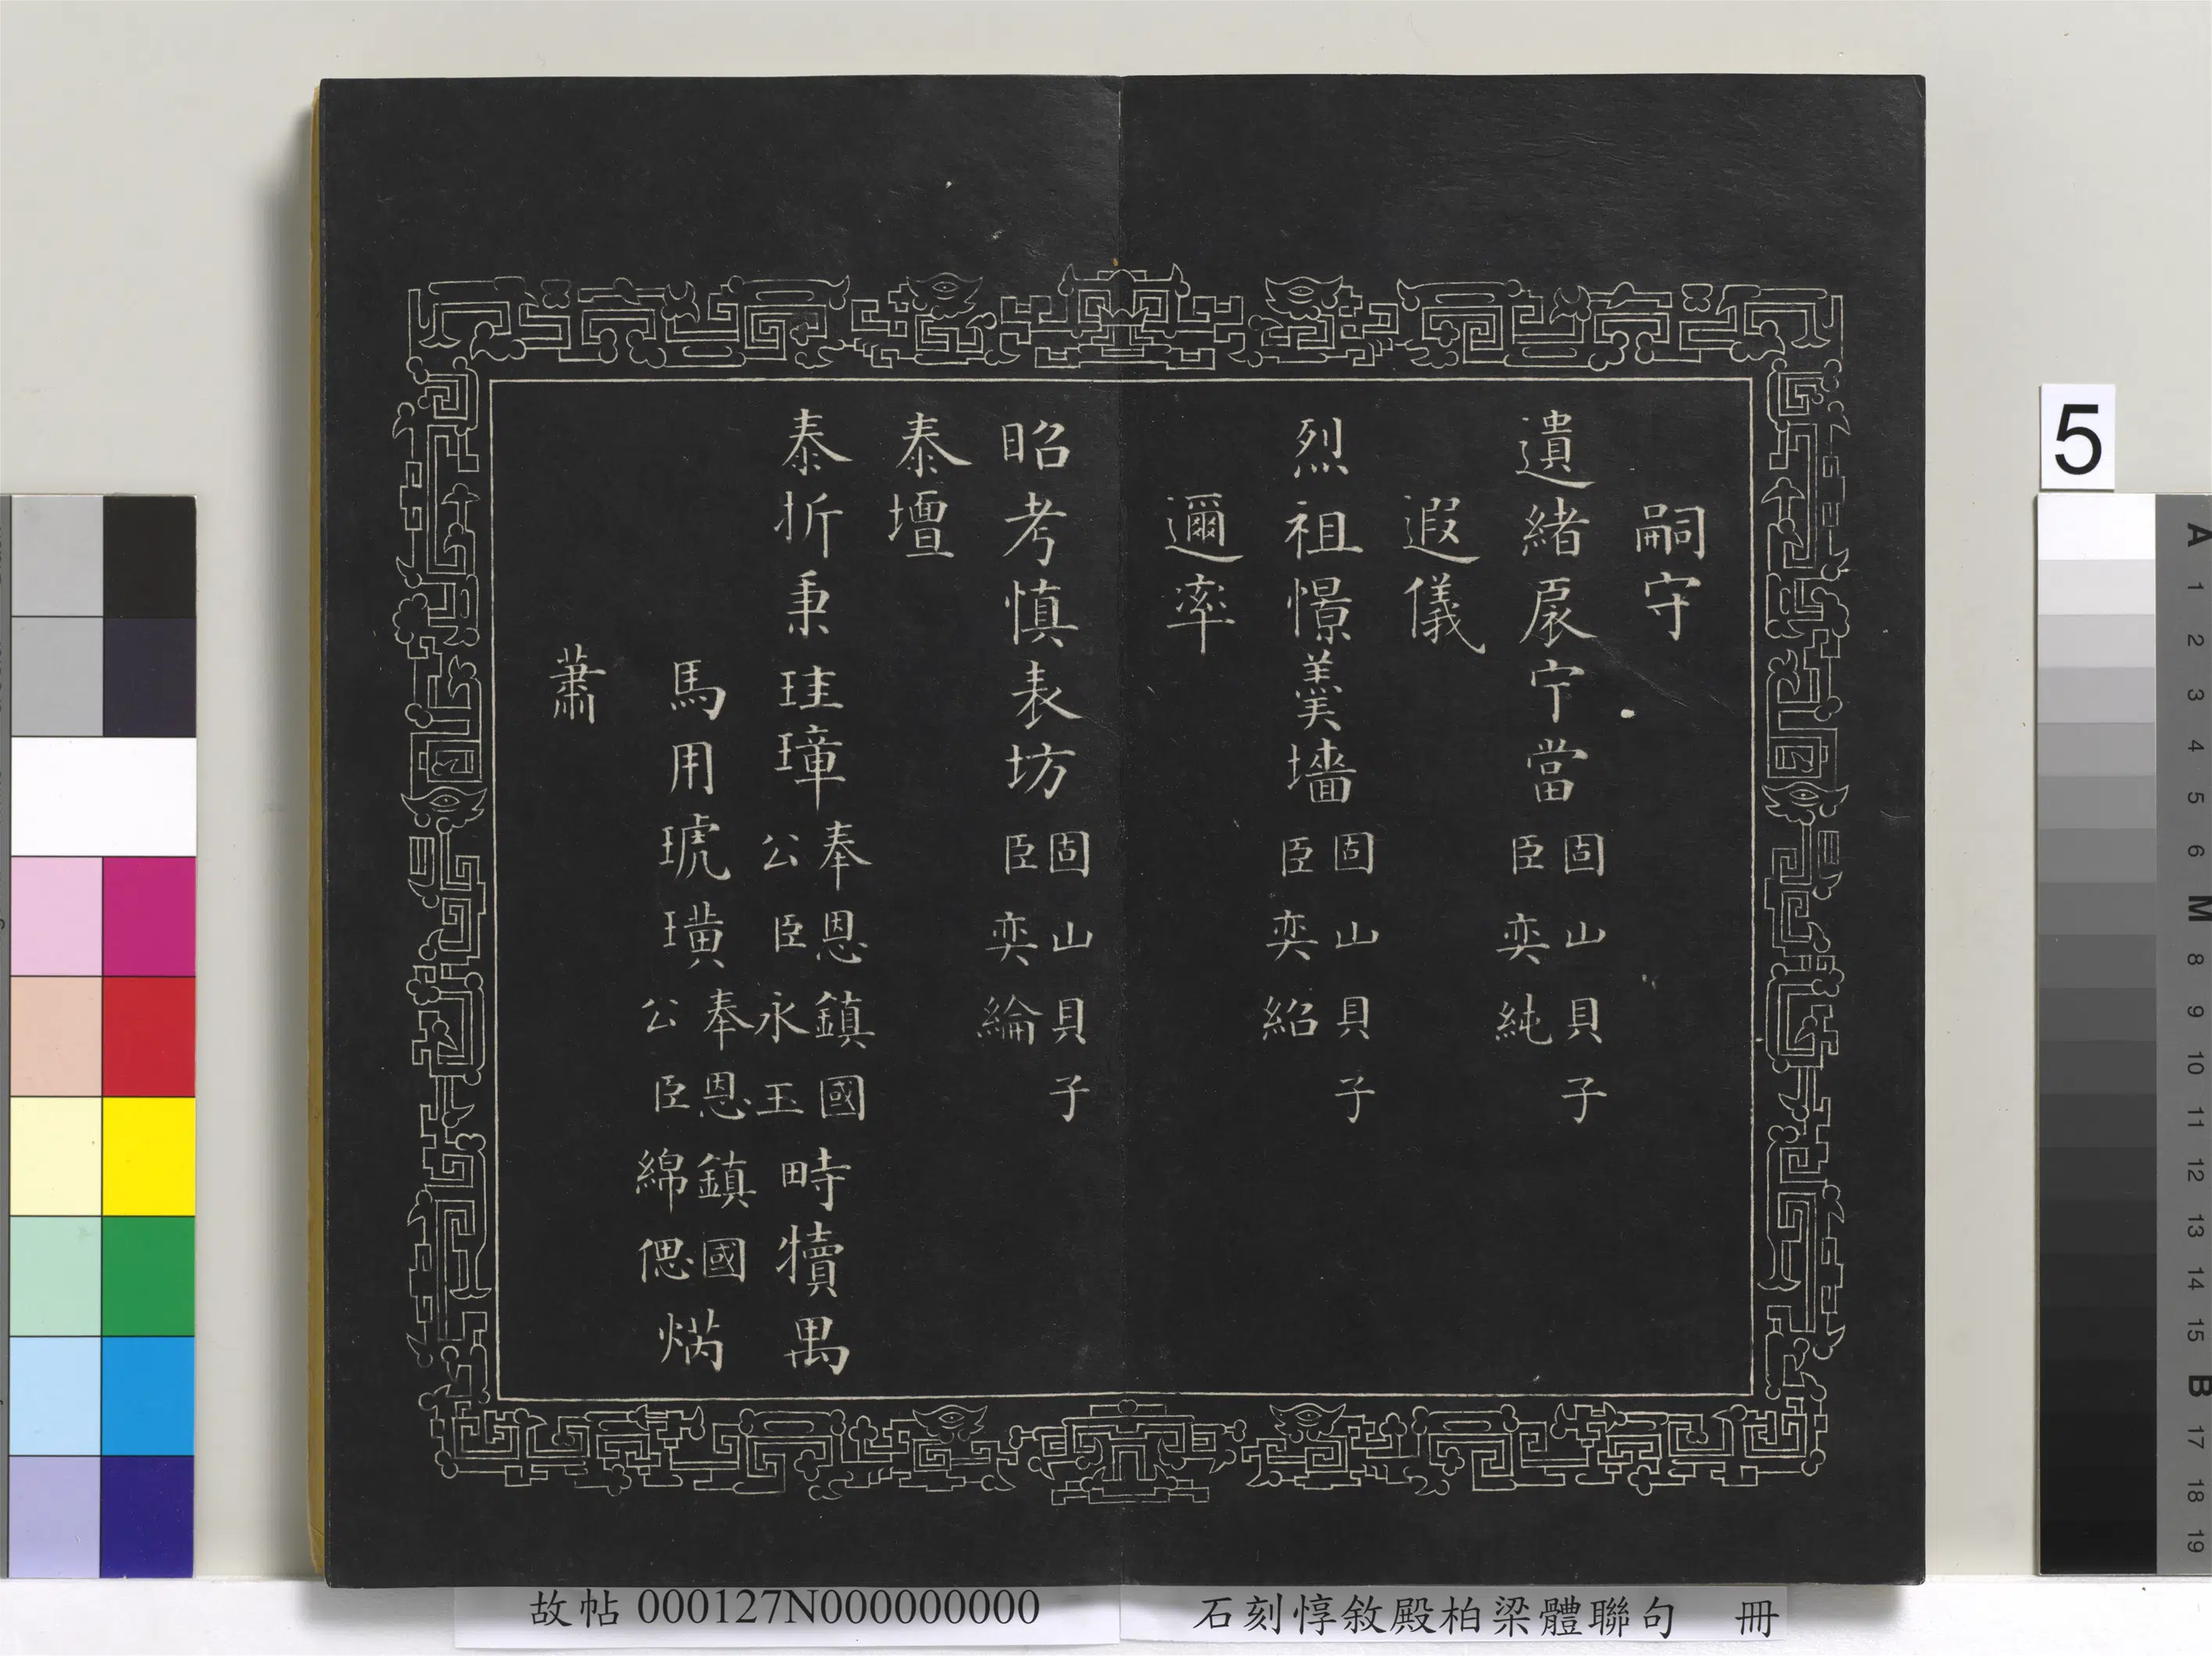 嗣守
遺緒扆宁當固山貝子臣奕純
遐儀
烈祖憬羹墻固山貝子臣奕紹
邇率
昭考慎表坊固山貝子臣奕綸
泰壇
泰折秉珪璋奉恩鎮國公臣永玉畤犢禺
馬用琥璜奉恩鎮國公臣綿偲焫
蕭
故帖 000127N000000000
石刻惇敘殿柏梁體聯句 冊
5
A
1
2
3
4
5
6
M
8
9
10
11
12
13
14
15
B
17
18
19